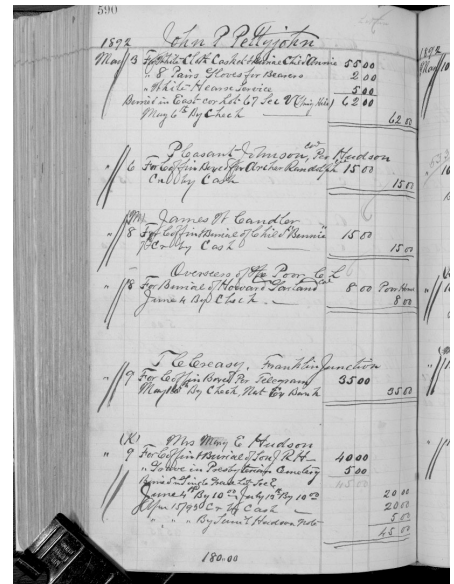 590
1892 John P Pettyjohn
May 3 For White Cloth Casket & Burial Child Annie 55 00
" 8 Pairs Gloves for Bearers 2 00
" White Hearse Service 5 00
Burial in East cor Lot 67 Sec V 62 00
May 6th By Check — 62 00
Pleasant Johnson, Per Hudson
" 6 For Coffin Boxed for Archer Randolph 15 00
Cr by Cash 15 00
James W Candler
" 8 For Coffin & Burial of Child "Bennie" 15 00
Cr by Cash 15 00
Overseers of the Poor, C. L.
" 8 For Burial of Howard Garland 8 00 Poor House
June 4 By Check — 8 00
T C Creasy, Franklin Junction
" 9 For Coffin Boxed Per Telegram 35 00
May By Check, Nat Ex Bank 35 00
(K) Mrs Mary E Hudson
" 9 For Coffin & Burial of Son J R H — 40 00
" Grave in Presbyterian Cemetery 5 00
45 00
June 4th By 10 00 July 12th By 10 00 20 00
Apr 15/93 Cr by Cash — 20 00
" " " By Hudson Note 5 00
45 00
180.00
1892
May 10